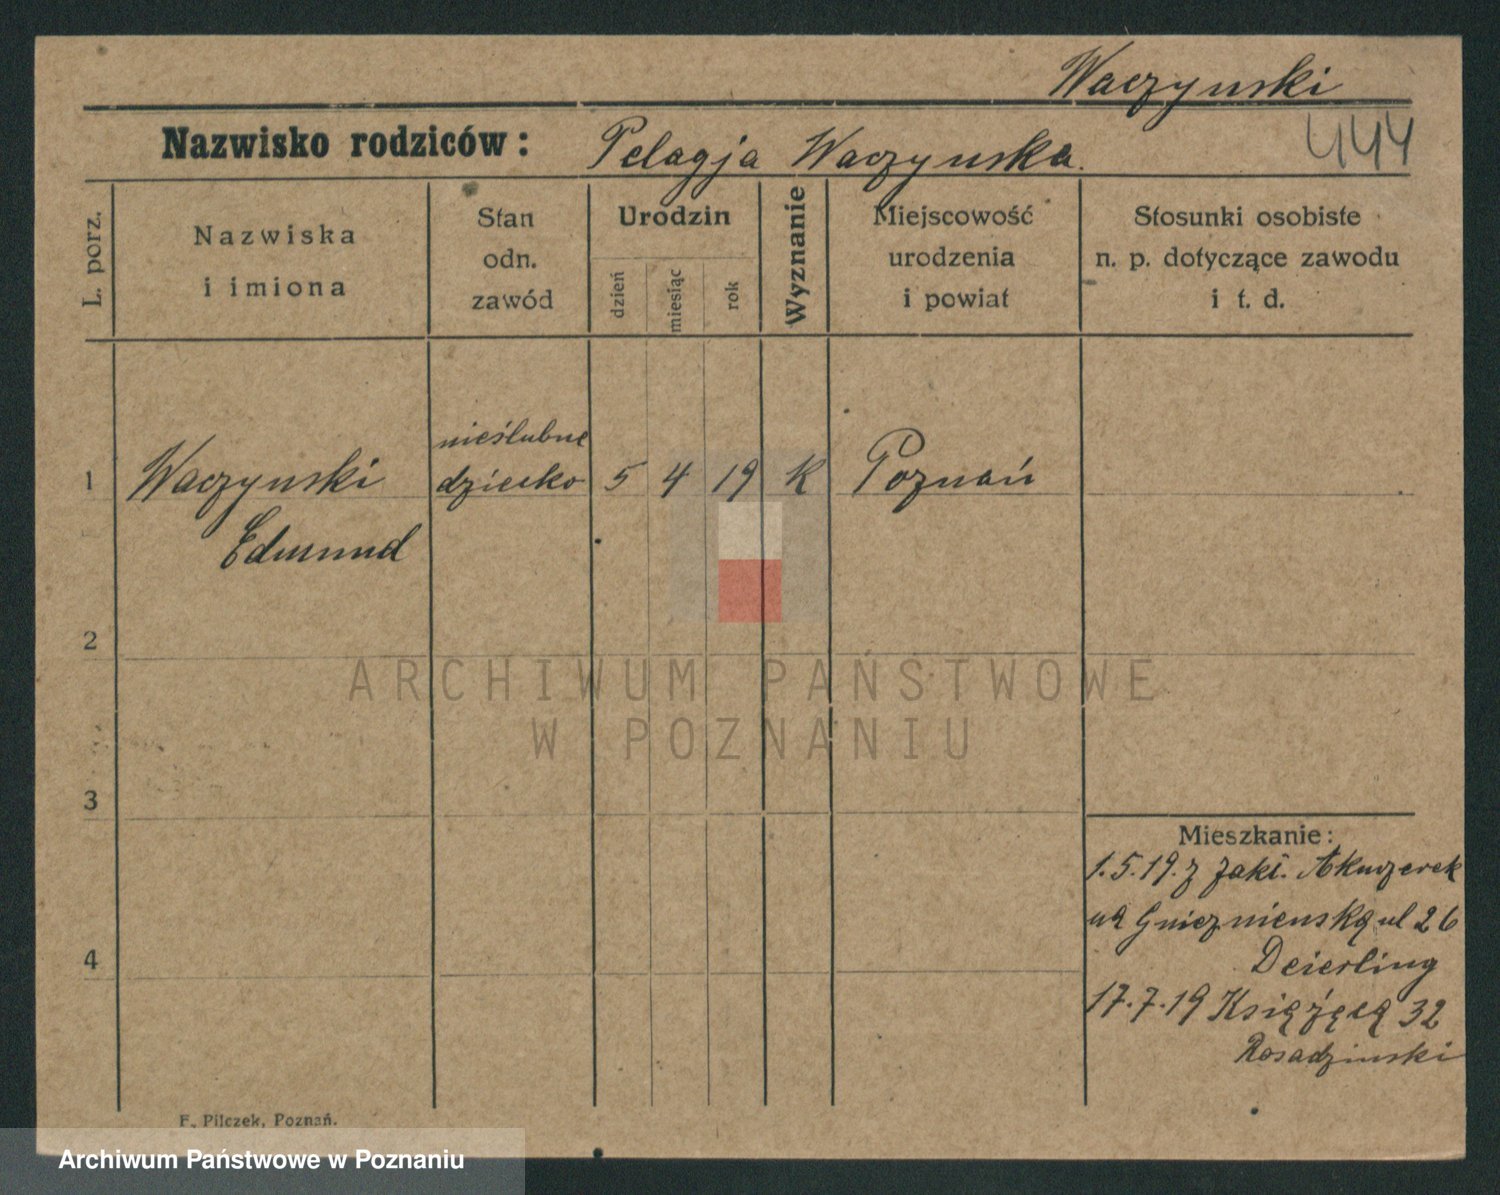 Waczynski
Nazwisko rodziców: Pelagja Waczynska.
444
L. porz.
Nazwiska
i imiona
Stan
odn.
zawód
Urodzin
dzień
miesiąc
rok
Wyznanie
Miejscowość
urodzenia
i powiat
Stosunki osobiste
n. p. dotyczące zawodu
i t. d.
nieślubne
1 Waczynski dziecko 5 4 19 K Poznań
Edmund
2
ARCHIWUM PAŃSTWOWE
W POZNANIU
3
Mieszkanie:
1.5.19. z Zakł. Akuszerek
na Gnieznienską ul 26
4
Deierling
17.7.19 Książęcą 32
Rosadzinski
F. Pilczek, Poznań.
Archiwum Państwowe w Poznaniu